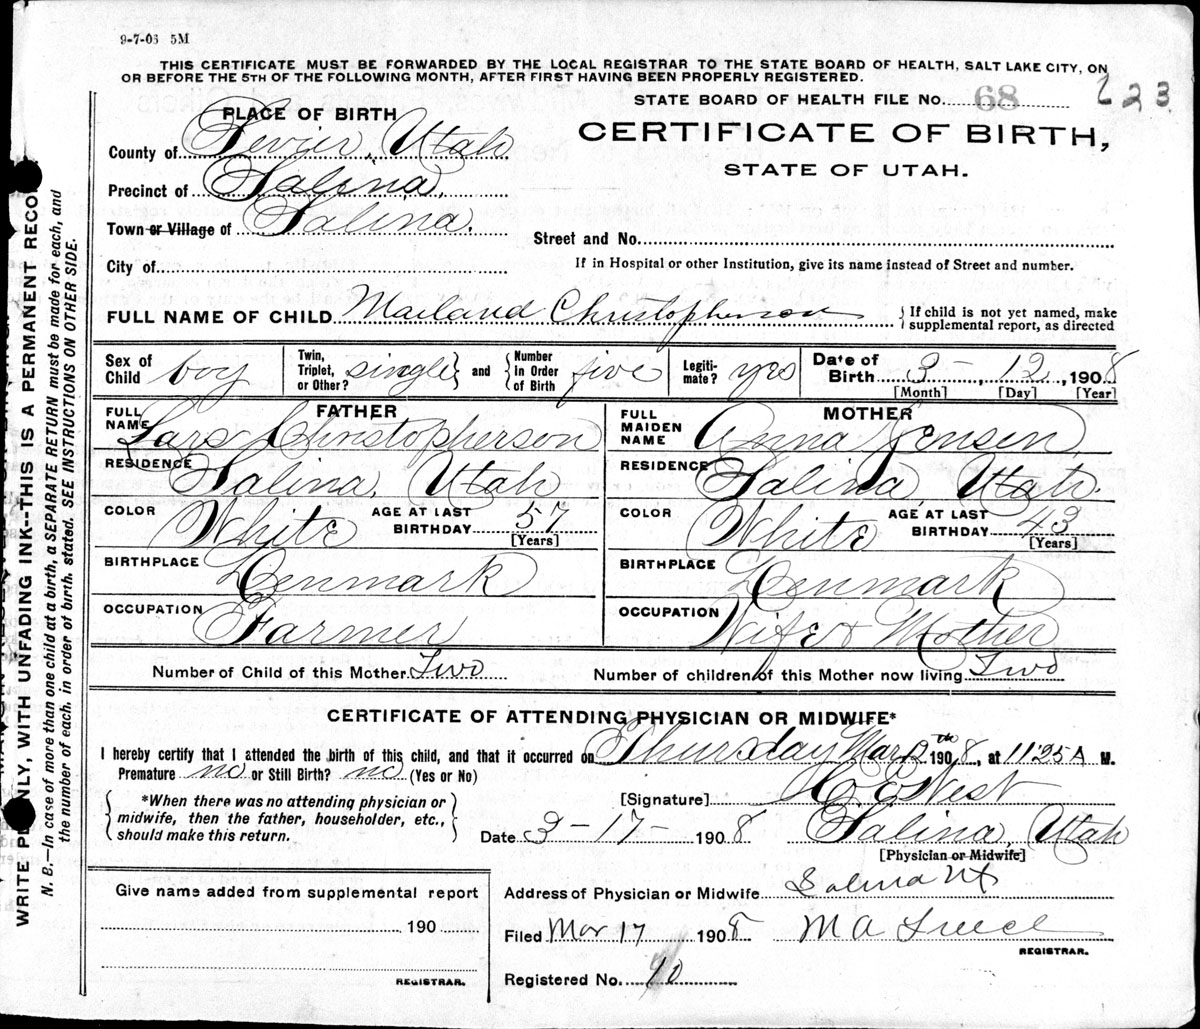 9-7-06 5M
THIS CERTIFICATE MUST BE FORWARDED BY THE LOCAL REGISTRAR TO THE STATE BOARD OF HEALTH, SALT LAKE CITY, ON
OR BEFORE THE 5TH OF THE FOLLOWING MONTH, AFTER FIRST HAVING BEEN PROPERLY REGISTERED.
STATE BOARD OF HEALTH FILE No. 68 223
CERTIFICATE OF BIRTH,
STATE OF UTAH.
PLACE OF BIRTH
County of Sevier, Utah
Precinct of Salina,
Town or Village of Salina.
Street and No.
City of
If in Hospital or other Institution, give its name instead of Street and number.
FULL NAME OF CHILD Mailand Christopherson
{ If child is not yet named, make
supplemental report, as directed
Sex of Child boy
Twin, Triplet, or Other? single } and { Number In Order of Birth five
Legiti-mate? yes
Date of Birth 3 - 12, 1908
[Month] [Day] [Year]
FATHER
FULL NAME Lars Christopherson
RESIDENCE Salina, Utah
COLOR White AGE AT LAST BIRTHDAY 57 [Years]
BIRTHPLACE Denmark
OCCUPATION Farmer
MOTHER
FULL MAIDEN NAME Anna Jensen,
RESIDENCE Salina, Utah.
COLOR White AGE AT LAST BIRTHDAY 43 [Years]
BIRTHPLACE Denmark
OCCUPATION Wife & Mother
Number of Child of this Mother Two
Number of children of this Mother now living Two
CERTIFICATE OF ATTENDING PHYSICIAN OR MIDWIFE*
I hereby certify that I attended the birth of this child, and that it occurred on Thursday Mar 12th 1908, at 11:25 A M.
Premature no or Still Birth? no (Yes or No)
{ *When there was no attending physician or
midwife, then the father, householder, etc.,
should make this return. }
[Signature] H. E. West
Date 3-17- 1908 Salina, Utah
[Physician or Midwife]
Give name added from supplemental report
190
REGISTRAR.
Address of Physician or Midwife Salina Ut
Filed Mar 17 1908 M A
REGISTRAR.
Registered No. 10
WRITE PLAINLY, WITH UNFADING INK--THIS IS A PERMANENT RECORD
N. B.—In case of more than one child at a birth, a SEPARATE RETURN must be made for each, and
the number of each, in order of birth, stated. SEE INSTRUCTIONS ON OTHER SIDE.